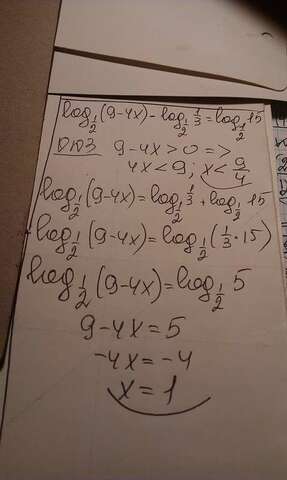 log_{1/2}(9-4x) - log_{1/2} 1/3 = log_{1/2} 15
ОДЗ 9-4x>0 =>
4x<9; x<9/4
log_{1/2}(9-4x) = log_{1/2} 1/3 + log_{1/2} 15
log_{1/2}(9-4x) = log_{1/2}(1/3·15)
log_{1/2}(9-4x) = log_{1/2} 5
9-4x=5
-4x=-4
x=1